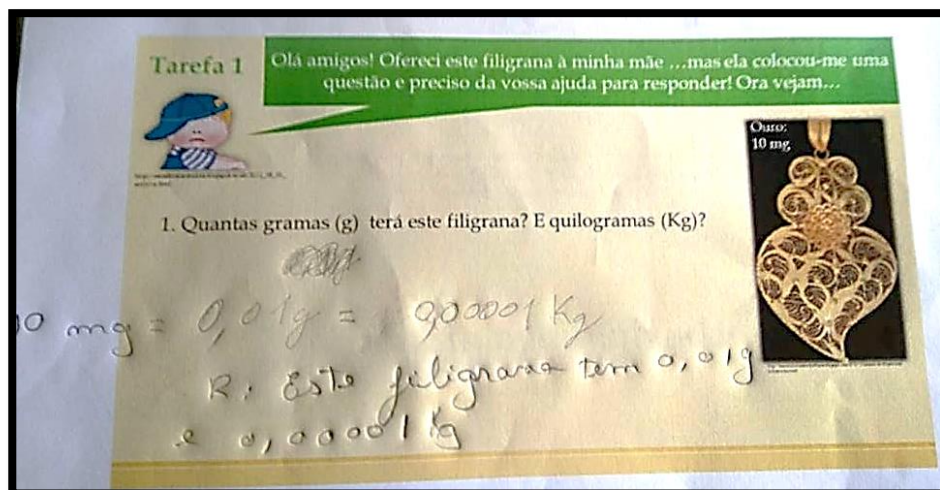 Tarefa 1
Olá amigos! Ofereci este filigrana à minha mãe ...mas ela colocou-me uma
questão e preciso da vossa ajuda para responder! Ora vejam...
Ouro:
10 mg
1. Quantas gramas (g) terá este filigrana? E quilogramas (Kg)?
10 mg = 0,01g = 0,00001 Kg
R: Este filigrana tem 0,01g
e 0,00001 kg